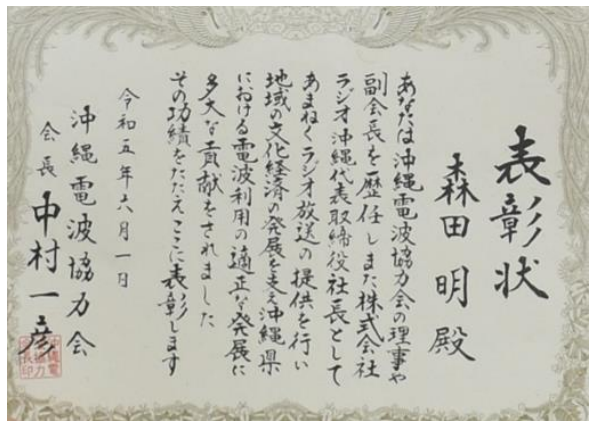 表彰状
森田 明 殿
あなたは沖縄電波協力会の理事や
副会長を歴任しまた株式会社
ラジオ沖縄代表取締役社長として
あまねくラジオ放送の提供を行い
地域の文化経済の発展を支え沖縄県
における電波利用の適正な発展に
多大な貢献をされました
その功績をたたえここに表彰します
令和五年六月一日
沖縄電波協力会
会長 中村一彦